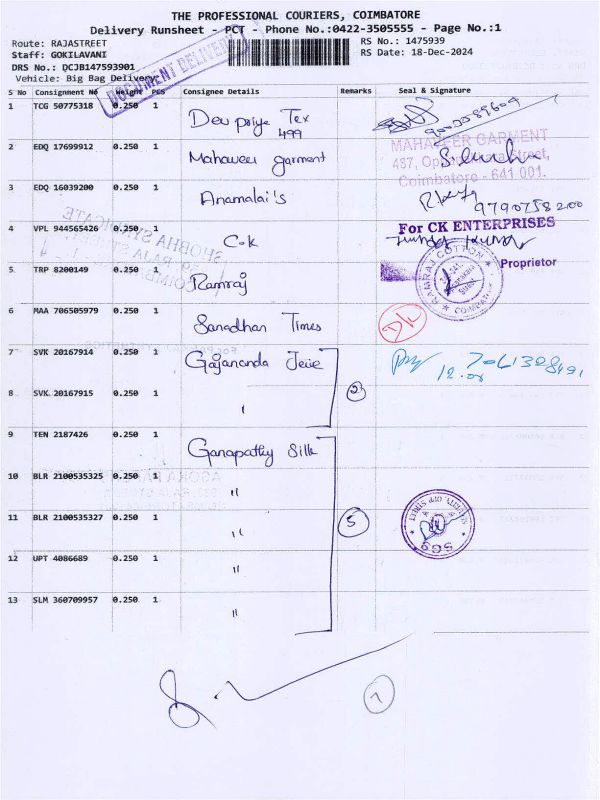 THE PROFESSIONAL COURIERS, COIMBATORE
Delivery Runsheet - PCT - Phone No.:0422-3505555 - Page No.:1
Route: RAJASTREET
RS No.: 1475939
Staff: GOKILAVANI
RS Date: 18-Dec-2024
DRS No.: DCJB147593901
Vehicle: Big Bag Delivery
DOCUMENT DELIVERY
S No Consignment No Weight PCS Consignee Details Remarks Seal & Signature
1 TCG 50775318 0.250 1 Devpriya Tex
499
2 EDQ 17699912 0.250 1 Mahaveer garment
MAHAVEER GARMENT
Street,
Coimbatore - 641 001.
3 EDQ 16039200 0.250 1 Anamalai's
9790758200
4 VPL 944565426 0.250 1 C.K
For CK ENTERPRISES
Proprietor
5 TRP 8200149 0.250 1 Ramraj
RAMRAJ COTTON
6 MAA 706505979 0.250 1 Sanadhan Times
7 SVK 20167914 0.250 1 Gajananda Jeie
8 SVK 20167915 0.250 1 "
2
9 TEN 2187426 0.250 1 Ganapathy Silk
10 BLR 2100535325 0.250 1 "
11 BLR 2100535327 0.250 1 "
5
12 UPT 4086689 0.250 1 "
13 SLM 360709957 0.250 1 "